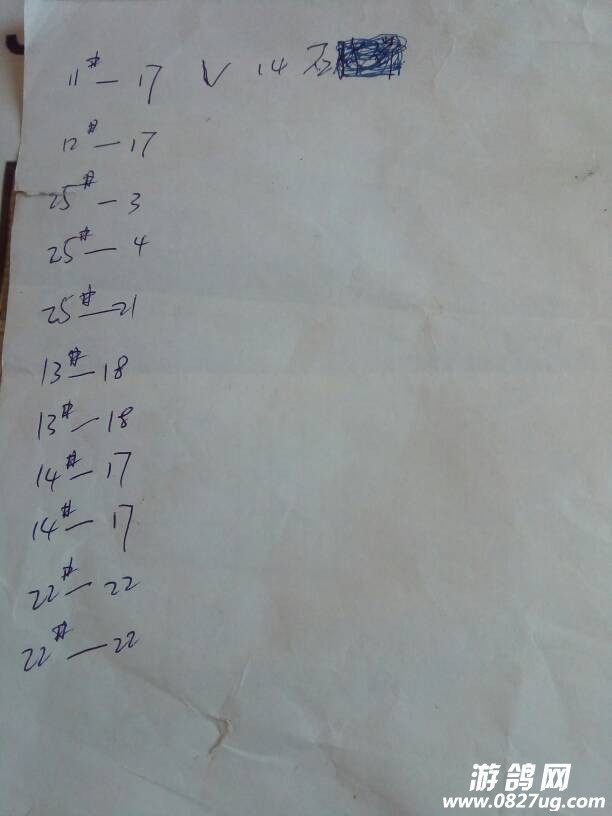 11#— 17 √ 14
12#— 17
25#— 3
25#— 4
25#—21
13#— 18
13#— 18
14#— 17
14#— 17
22#— 22
22#—22
游鸽网
www.0827ug.com